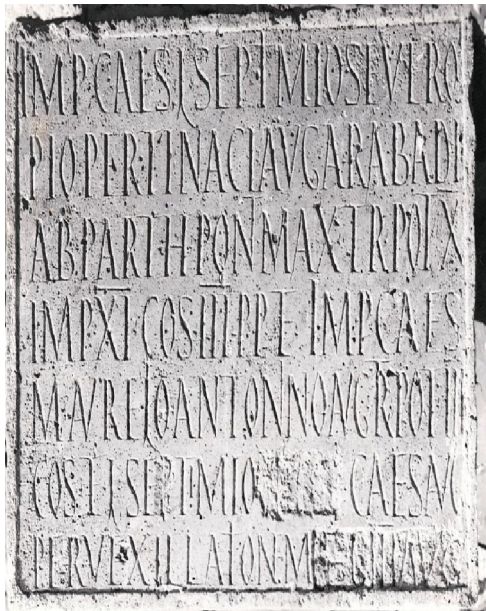 IMPCAESLSEPTIMIOSEVERO
PIOPERTINACIAVGARABADI
ABPARTHPONTMAXTRPOTX
IMPXICOSIIIPPE IMPCAES
MAVRELIOANTON
COSTLSEPTIMIO CAESAVG
PERVEXILLATION